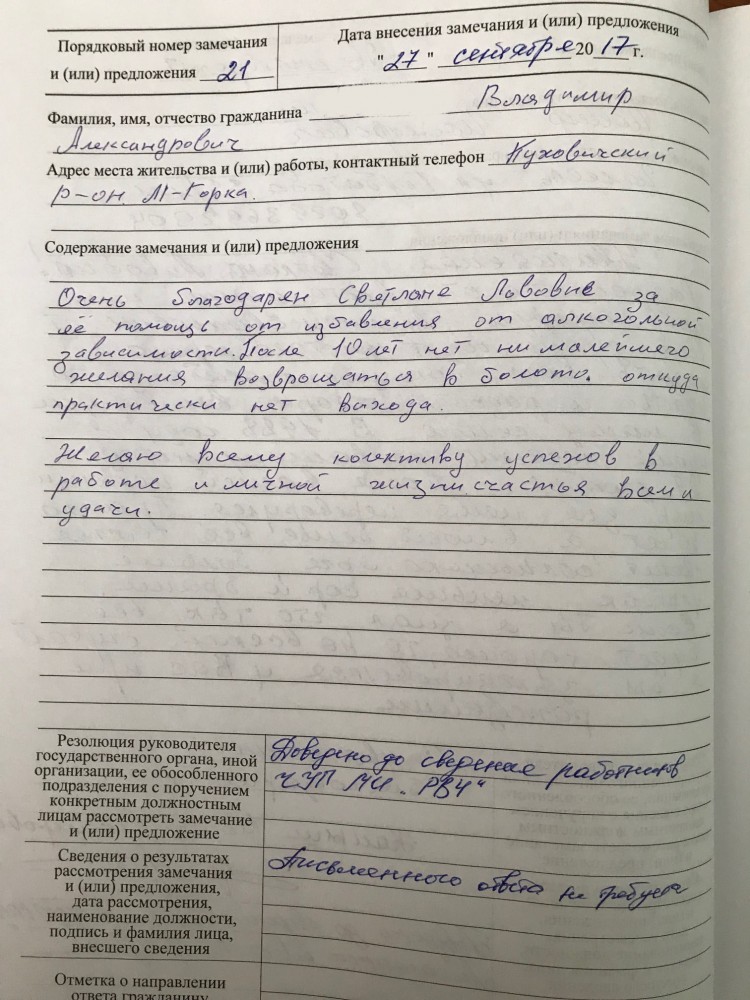 Порядковый номер замечания
и (или) предложения 21
Дата внесения замечания и (или) предложения
"27" сентября 2017 г.
Фамилия, имя, отчество гражданина Владимир
Александрович
Адрес места жительства и (или) работы, контактный телефон Пуховичский
р-он. М-Горка.
Содержание замечания и (или) предложения
Очень благодарен Светлане Львовне за
её помощь от избавления от алкогольной
зависимости. После 10 лет нет ни малейшего
желания возвращаться в болото. откуда
практически нет выхода.
Желаю всему колективу успехов в
работе и личной жизни. счастья вам и
удачи.
Резолюция руководителя
государственного органа, иной
организации, ее обособленного
подразделения с поручением
конкретным должностным
лицам рассмотреть замечание
и (или) предложение
Доведено до сведения работников
ЧУП МЦ "РВЧ"
Сведения о результатах
рассмотрения замечания
и (или) предложения,
дата рассмотрения,
наименование должности,
подпись и фамилия лица,
внесшего сведения
Письменного ответа не требует
Отметка о направлении
ответа гражданину